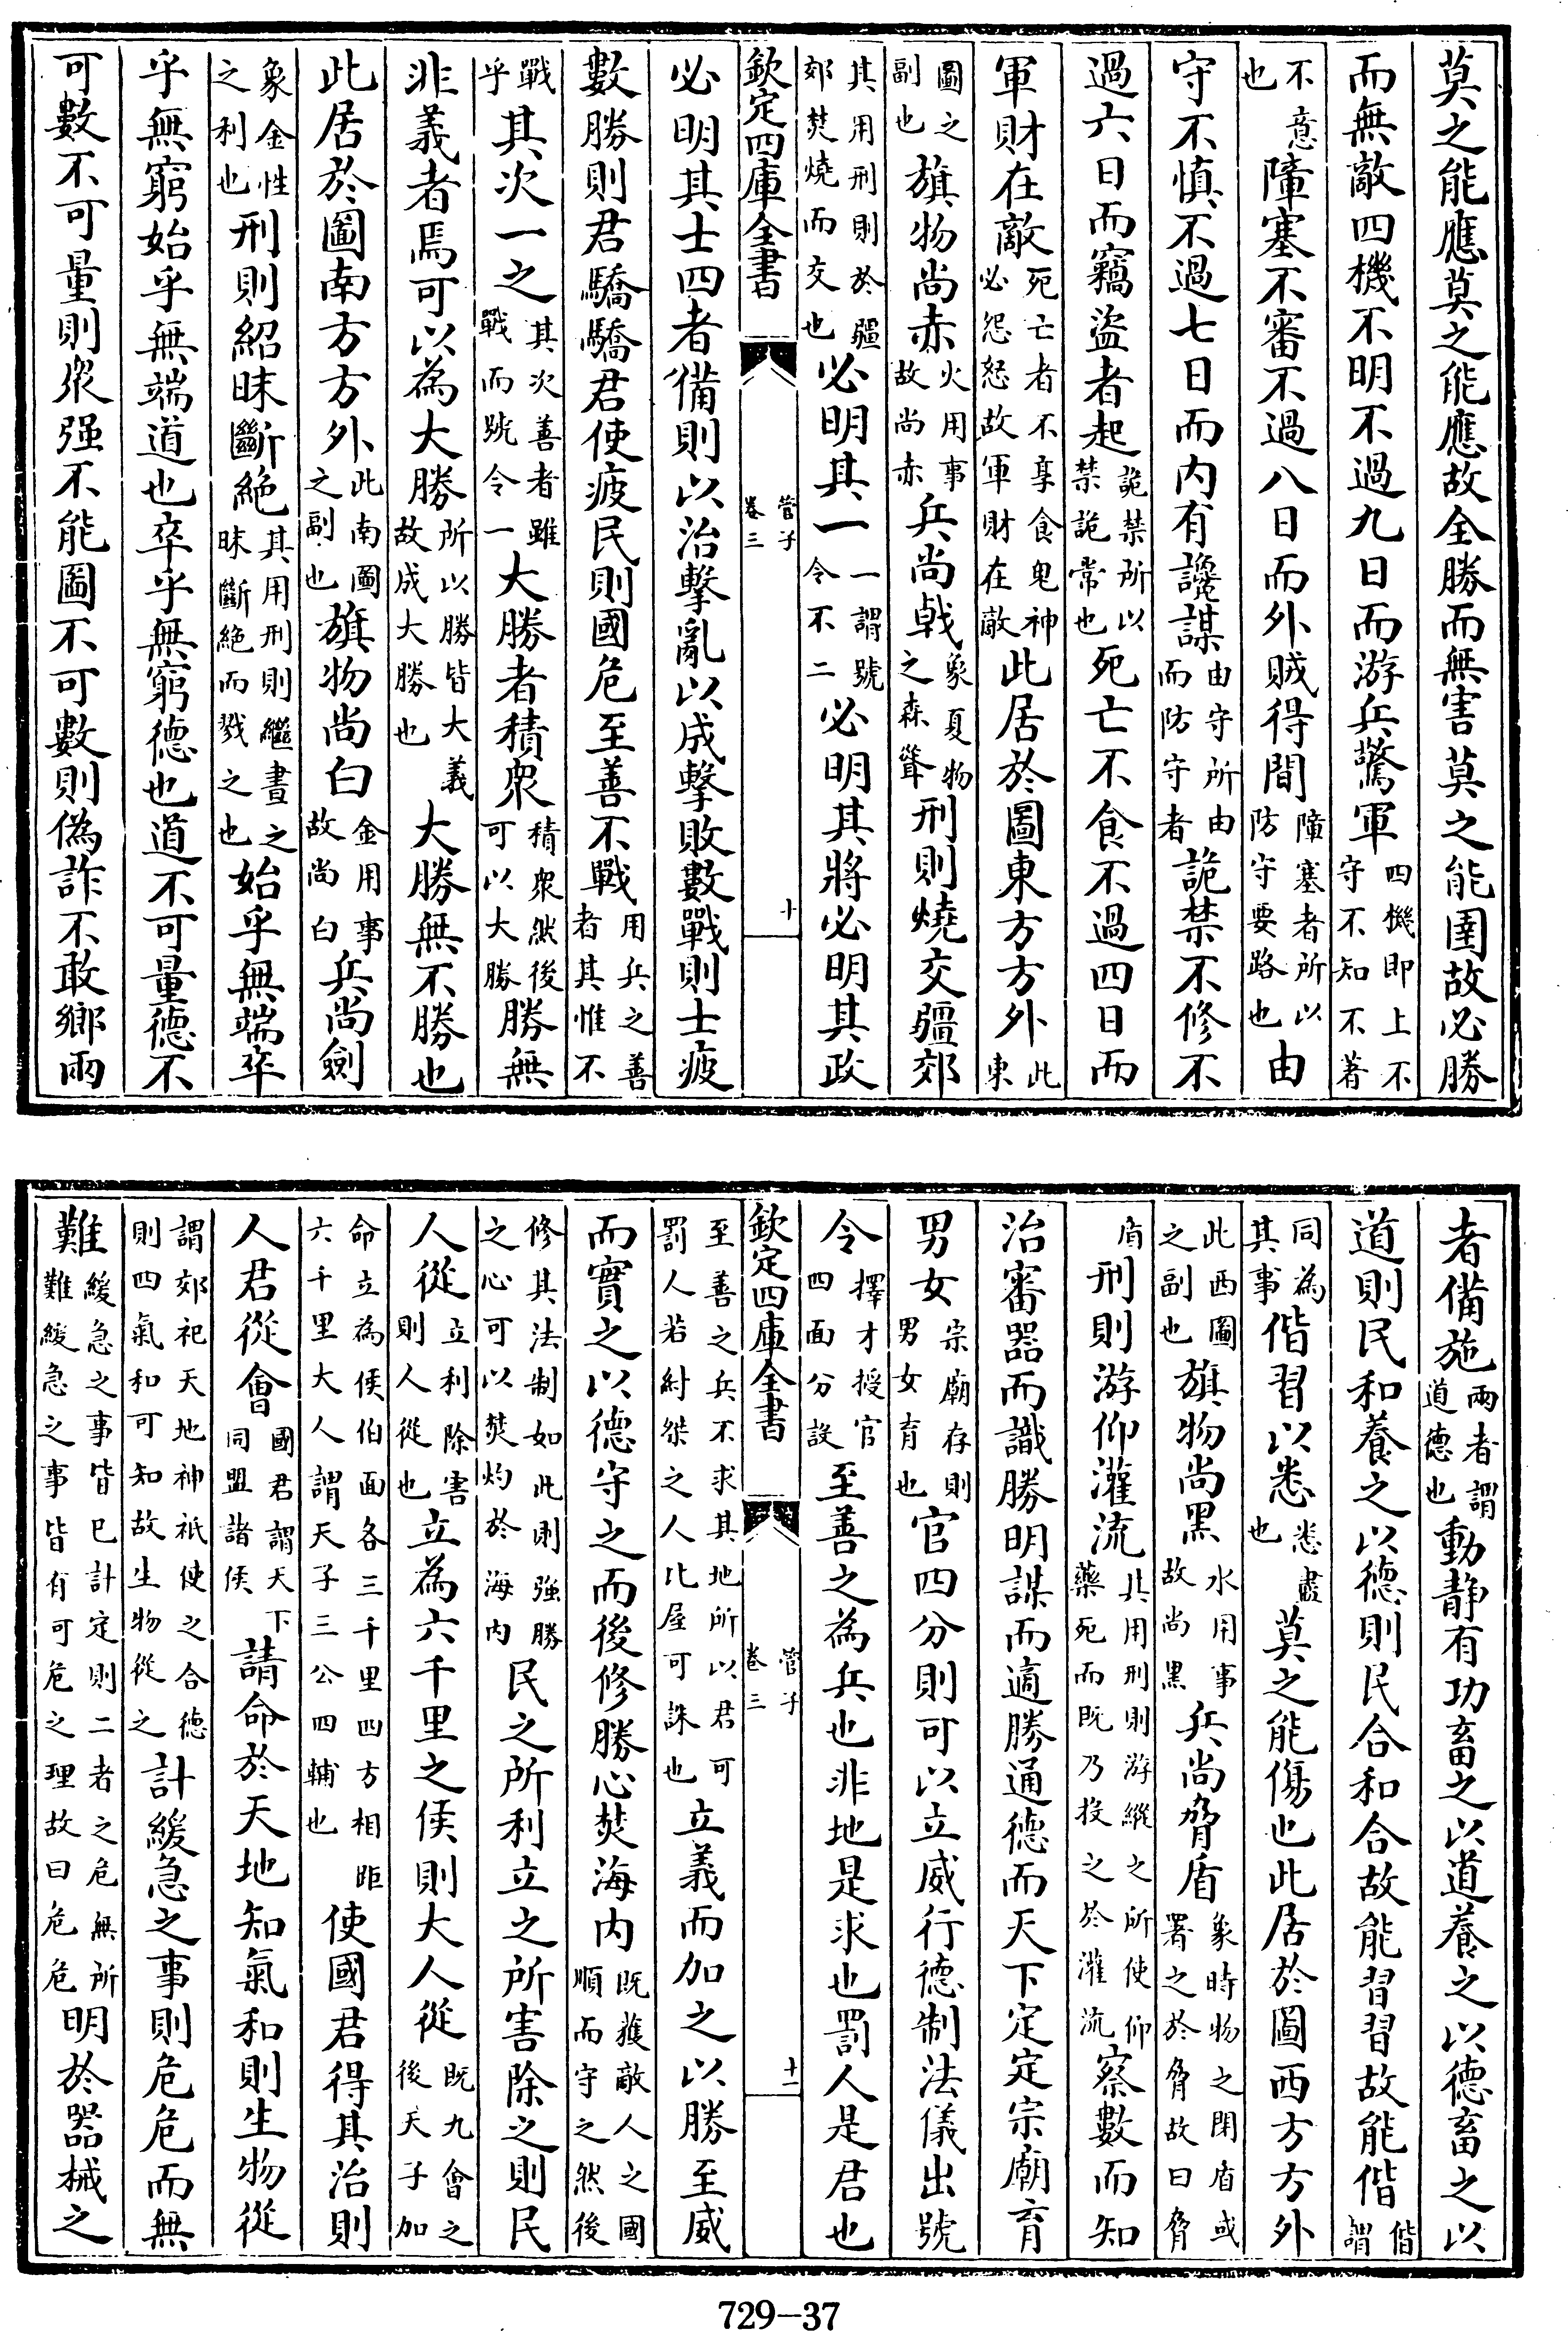 莫之能應莫之能應故全勝而無害莫之能圉故必勝
而無敵四機不明不過九日而游兵驚軍四機即上不守不知不著
不意也障塞不審不過八日而外賊得間障塞者所以防守要路也由
守不慎不過七日而內有讒謀由守所由而防守者詭禁不修不
過六日而竊盜者起詭禁所以禁詭常也死亡不食不過四日而
軍財在敵死亡者不享食鬼神必怨怒故軍財在敵此居於圖東方方外此東
圖之副也旗物尚赤火用事故尚赤兵尚戟象夏物之森聳刑則燒交疆郊
其用刑則於疆郊焚燒而交也必明其一一謂號令不二必明其將必明其政
欽定四庫全書
管子
卷三
十
必明其士四者備則以治擊亂以成擊敗數戰則士疲
數勝則君驕驕君使疲民則國危至善不戰用兵之善者其惟不
戰乎其次一之其次善者雖戰而號令一大勝者積衆積衆然後可以大勝勝無
非義者焉可以為大勝所以勝皆大義故成大勝也大勝無不勝也
此居於圖南方方外此南圖之副也旗物尚白金用事故尚白兵尚劍
象金性之利也刑則紹昧斷絶其用刑則繼晝之昧斷絶而戮之也始乎無端卒
乎無窮始乎無端道也卒乎無窮德也道不可量德不
可數不可量則衆强不能圖不可數則偽詐不敢鄉兩
者備施兩者謂道德也動静有功畜之以道養之以德畜之以
道則民和養之以德則民合和合故能習習故能偕偕謂
同為其事偕習以悉悉盡也莫之能傷也此居於圖西方方外
此西圖之副也旗物尚黑水用事故尚黑兵尚脅盾象時物之閉盾或署之於脅故曰脅
盾刑則游仰灌流其用刑則游縱之所使仰藥死而既乃投之於灌流察數而知
治審器而識勝明謀而適勝通德而天下定定宗廟育
男女宗廟存則男女育也官四分則可以立威行德制法儀出號
令擇才授官四面分設至善之為兵也非地是求也罰人是君也
欽定四庫全書
管子
卷三
十一
至善之兵不求其地所以君可罰人若紂桀之人比屋可誅也立義而加之以勝至威
而實之以德守之而後修勝心焚海內既獲敵人之國順而守之然後
修其法制如此則強勝之心可以焚灼於海內民之所利立之所害除之則民
人從立利除害則人從也立為六千里之侯則大人從既九會之後天子加
命立為侯伯面各三千里四方相距六千里大人謂天子三公四輔也使國君得其治則
人君從會國君謂天下同盟諸侯請命於天地知氣和則生物從
謂郊祀天地神祇使之合德則四氣和可知故生物從之計緩急之事則危危而無
難緩急之事皆已計定則二者之危無所難緩急之事皆有可危之理故曰危危明於器械之
729-37